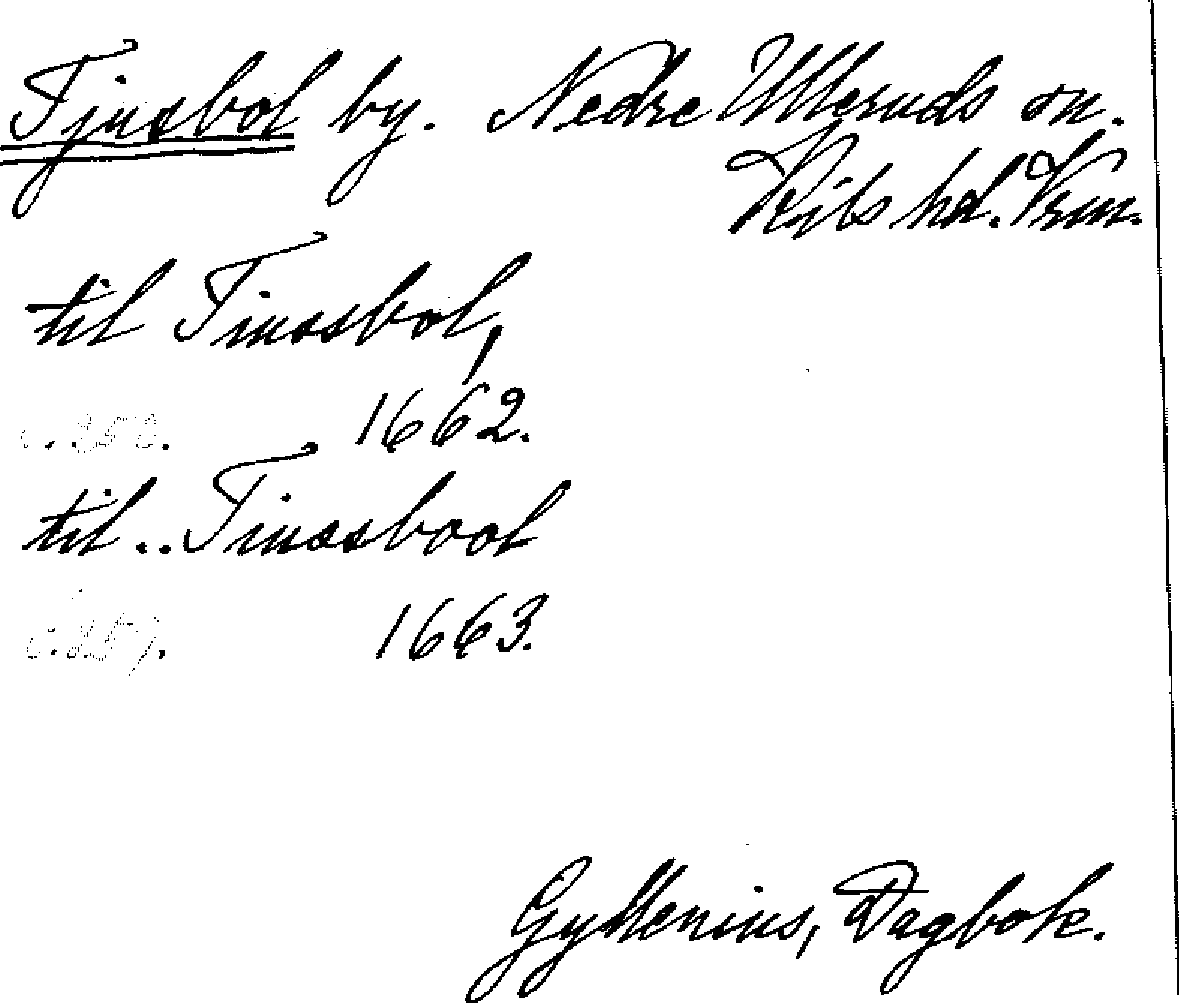 Tjusbol by. Nedre Ulleruds sn.
Kils hd. Vrm.
til Tiussbol,
s. 252. 1662.
til .. Tiussbool
s. 257. 1663.
Gyllenius, Dagbok.